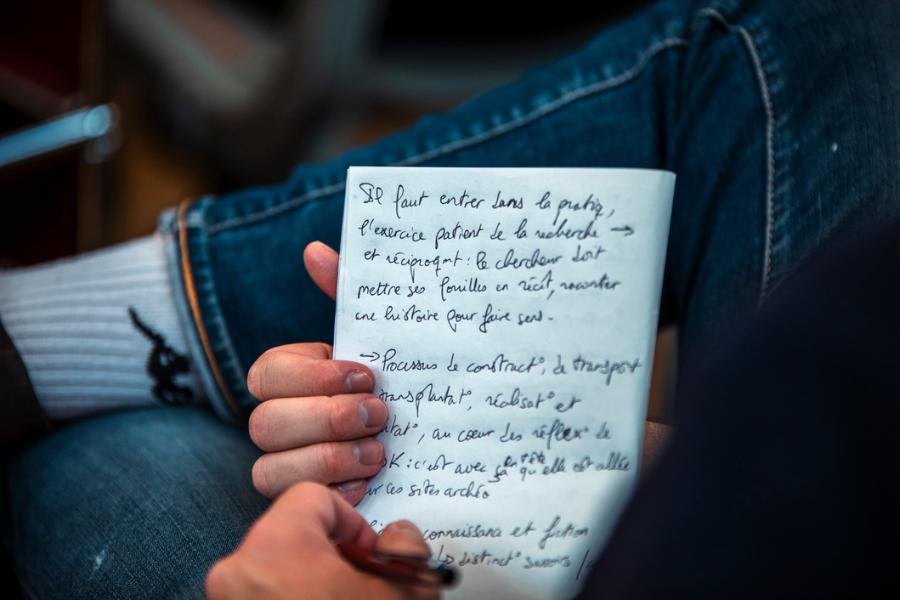 Il faut entrer dans la pratiq,
l'exercice patient de la recherche →
et réciproqmt : le chercheur doit
mettre ses fouilles en récit, raconter
une histoire pour faire sens.
→ Processus de construct°, de transport
transplantat°, réalisat° et
tat°, au coeur des réflex° de
K : c'est avec ça en tête qu'elle est allée
sur ces sites archéo
connaissance et fiction
↳ distinct° savoirs /